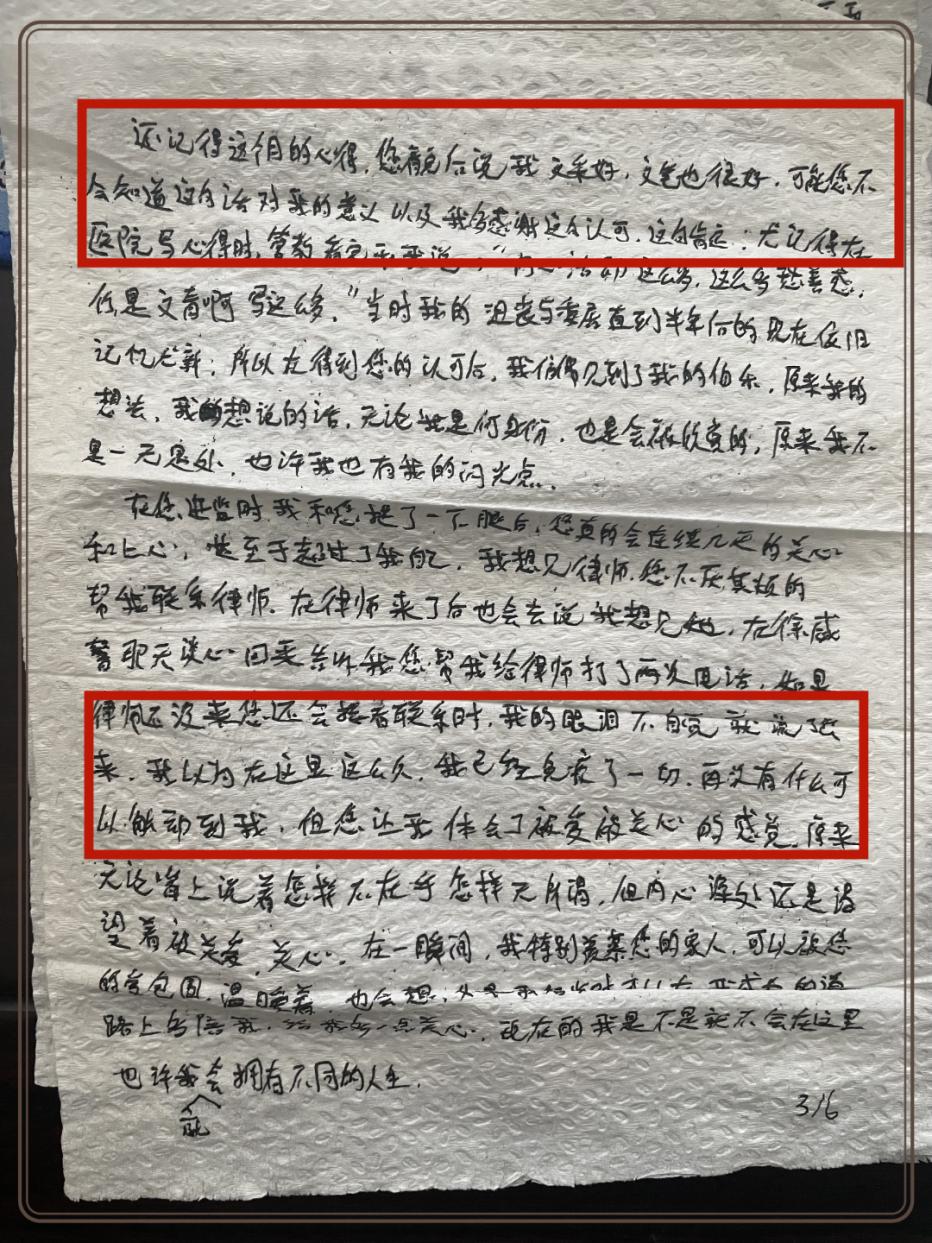 还记得这个月的心得，您看后说我文采好，文笔也很好，可能您不
会知道这句话对我的意义以及我多感谢这句认可，这句肯定；尤记得在
医院写心得时，管教看完和我说："内心活动这么多，这么多愁善感，
你是文青啊写这么多，"当时我的沮丧与委屈直到半年后的现在依旧
记忆尤新，所以在得到您的认可后，我仿佛见到了我的伯乐，原来我的
想法，我想说的话，无论我是何身份，也是会被欣赏的，原来我不
是一无是处，也许我也有我的闪光点。
在您进监时我和您提了一下腿后，您真的会连续几天的关心
和上心，甚至于超过了我自己，我想见律师，您不厌其烦的
帮我联系律师，在律师来了后也会去说我想见她，在徐
警聊天谈心回来告诉我您帮我给律师打了两次电话，如果
律师还没来您还会接着联系时，我的眼泪不自觉就流了出
来，我以为在这里这么久，我已经免疫了一切，再没有什么可
以触动到我，但您让我体会了被爱被关心的感觉，原来
无论嘴上说着怎样不在乎怎样无所谓，但内心深处还是渴
望着被关爱，关心。在一瞬间，我特别羡慕您的家人，可以被您
的爱包围，温暖着，也会想，的道
路上多陪我，给我多一点关心，现在的我是不是就不会在这里
也许我会拥有不同的人生。
能
3/6